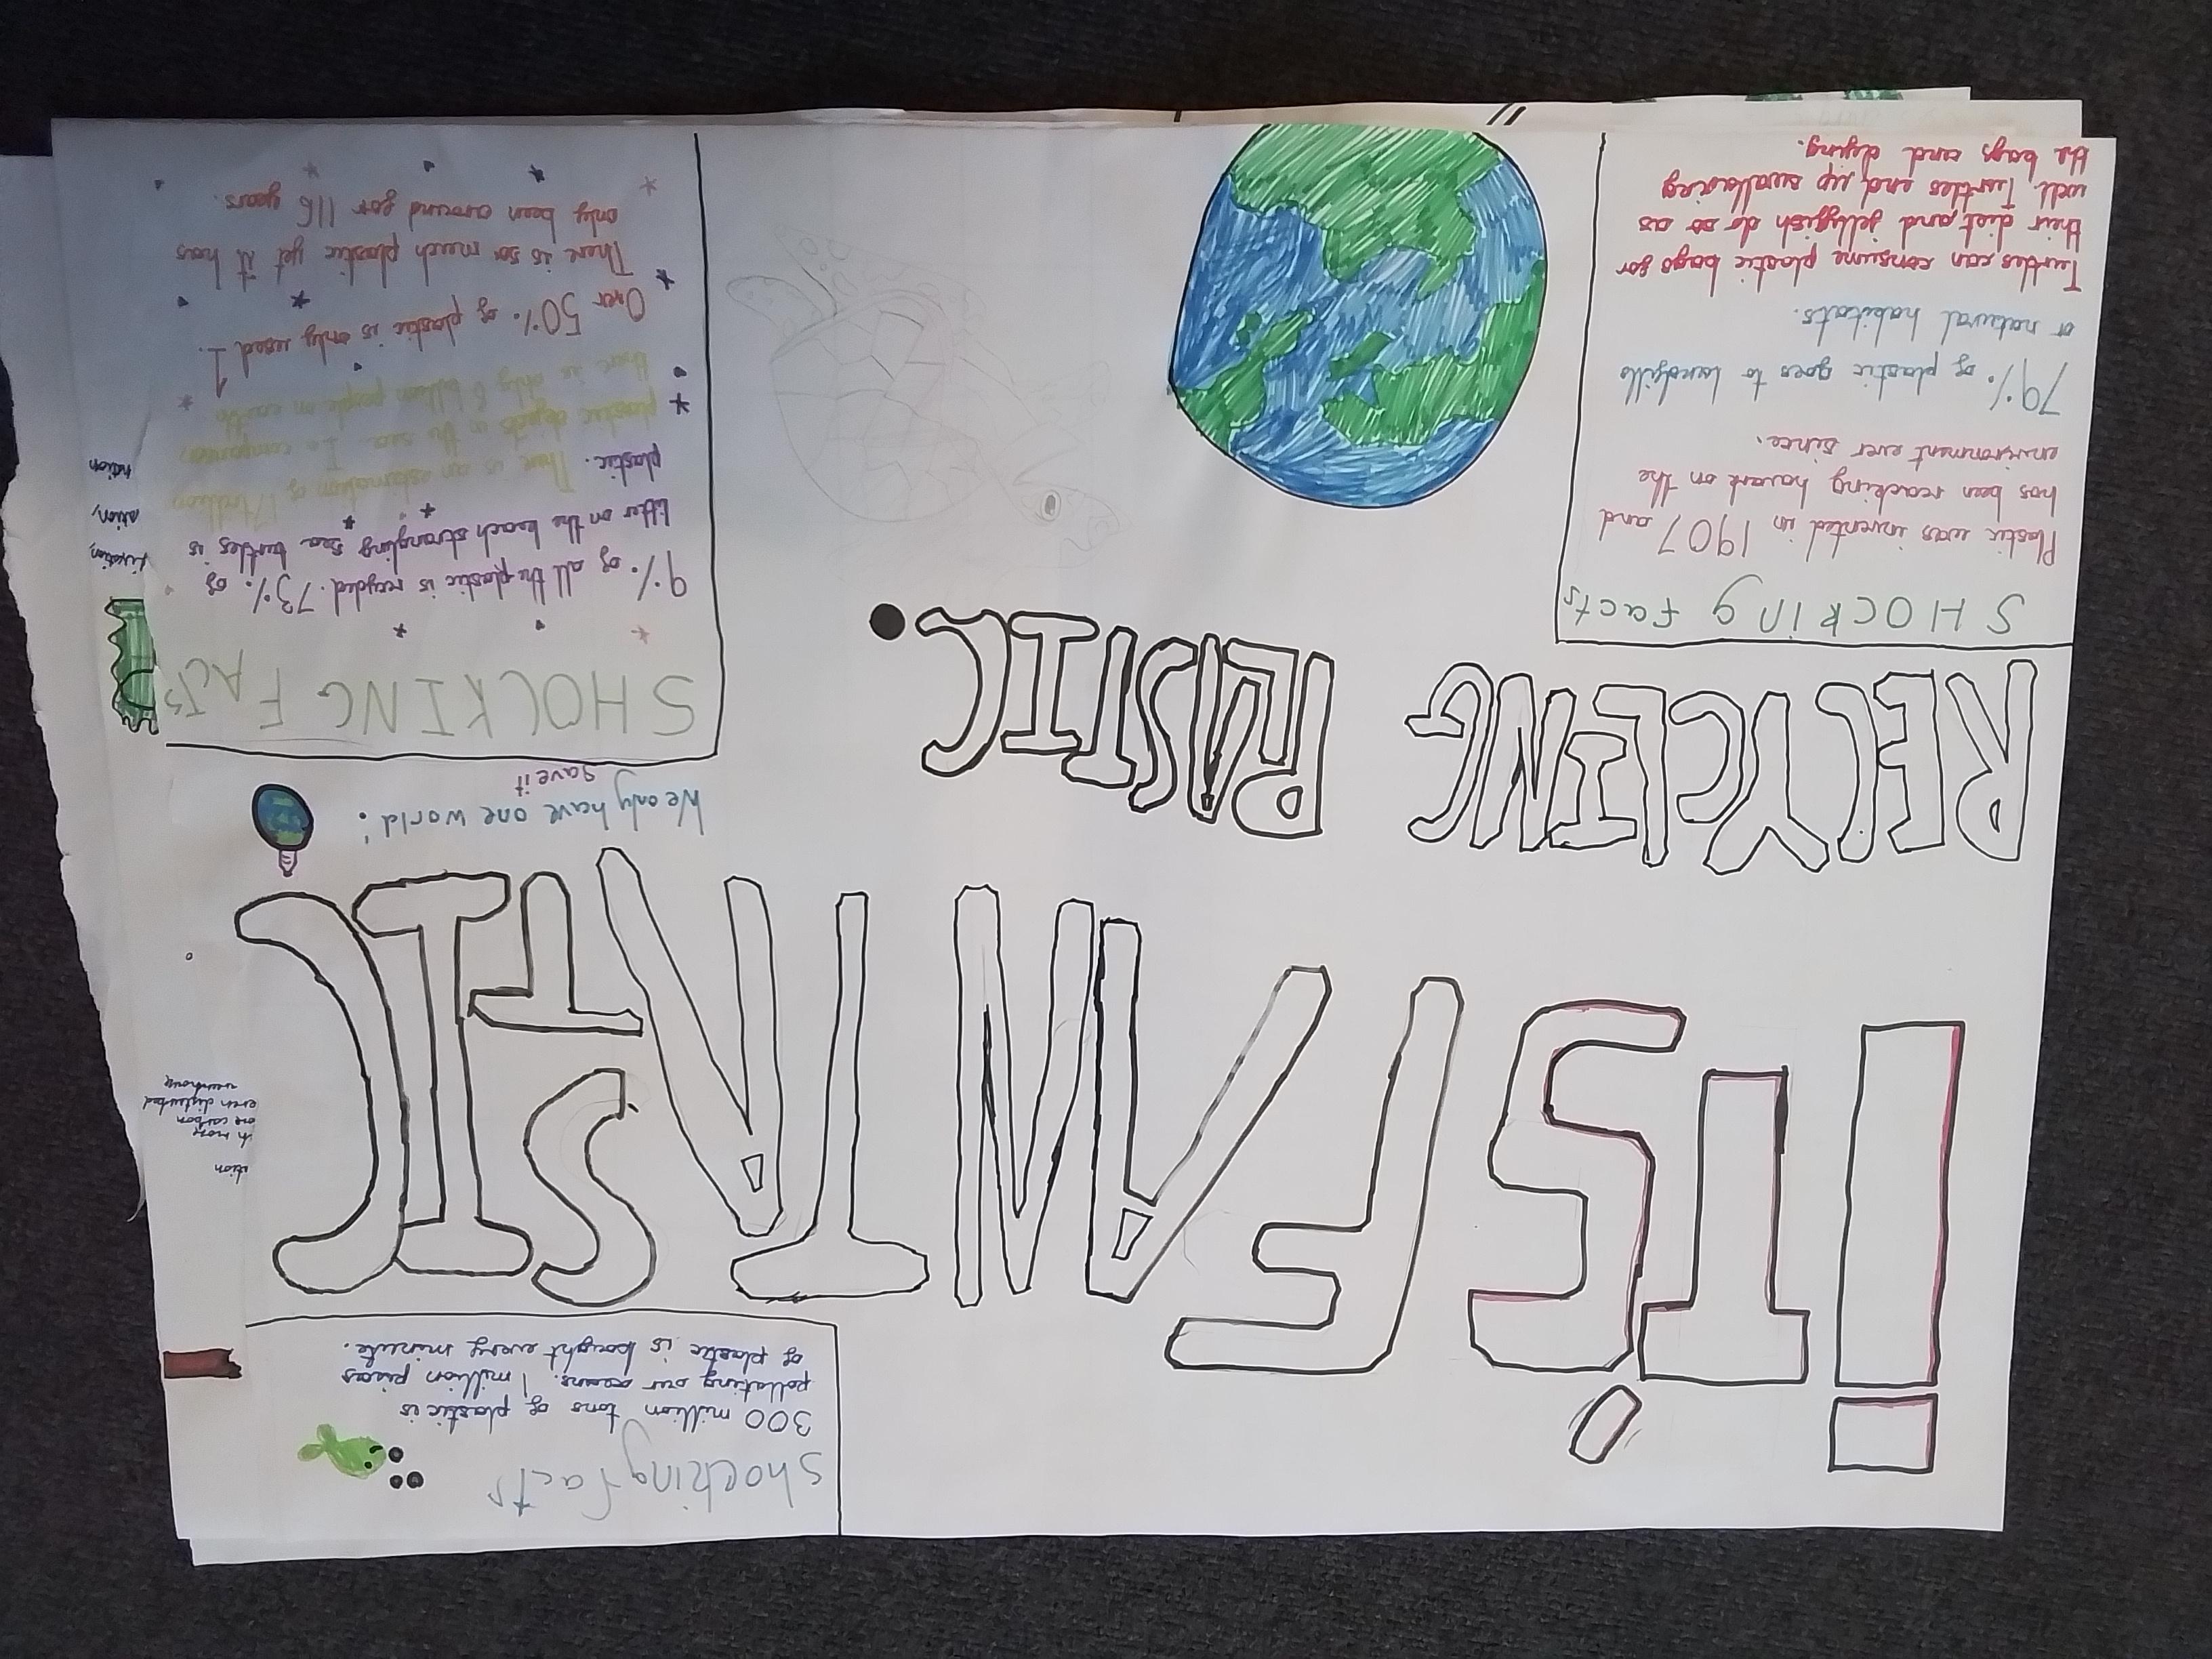 Shocking facts
300 million tons of plastic is
polluting our oceans. 1 million pieces
of plastic is bought every minute.
iT'S FANTASTIC
RECYCLING PLASTIC.
We only have one world!
Save it
SHOCKING facts
Plastic was invented in 1907 and
has been reacking havack on the
environment ever since.
79% of plastic goes to landfills
or natural habitats.
Turtles can consume plastic bags for
their diet and jellyfish do so as
well. Turtles end up swallowing
the bags and dying.
SHOCKING FACTS
9% of all the plastic is recycled. 73% of
litter on the beach strangling sea turtles is
plastic. There is an estimation of 1 trillion
plastic objects in the sea. In comparison
there is only 8 billion people on earth
Over 50% of plastic is only used 1.
There is so much plastic yet it has
only been around for 116 years.